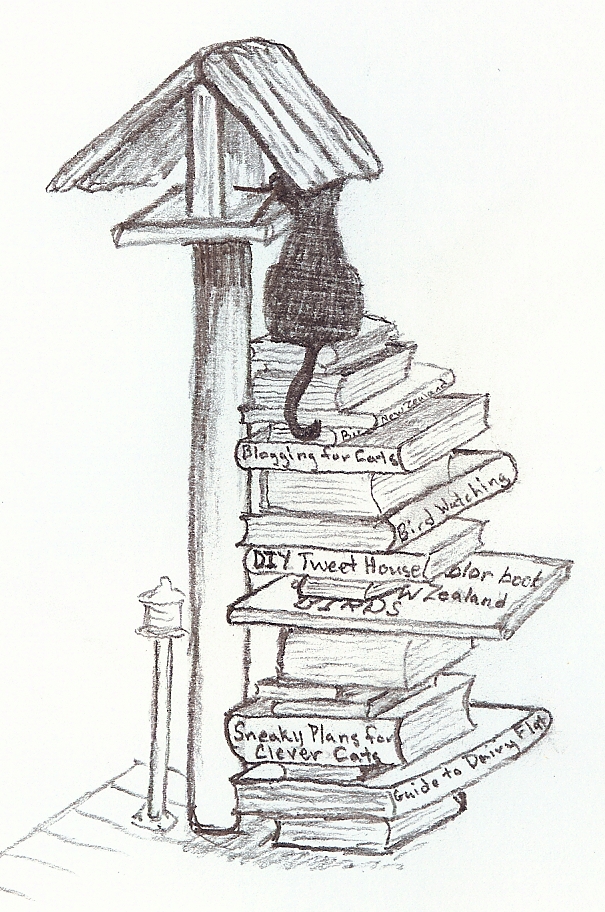 New Zealand
Blogging for
Bird Watching
DIY Tweet House
olor book
W Zealand
BIRDS
Sneaky Plans for
Clever Cats
Guide to Dairy Flat